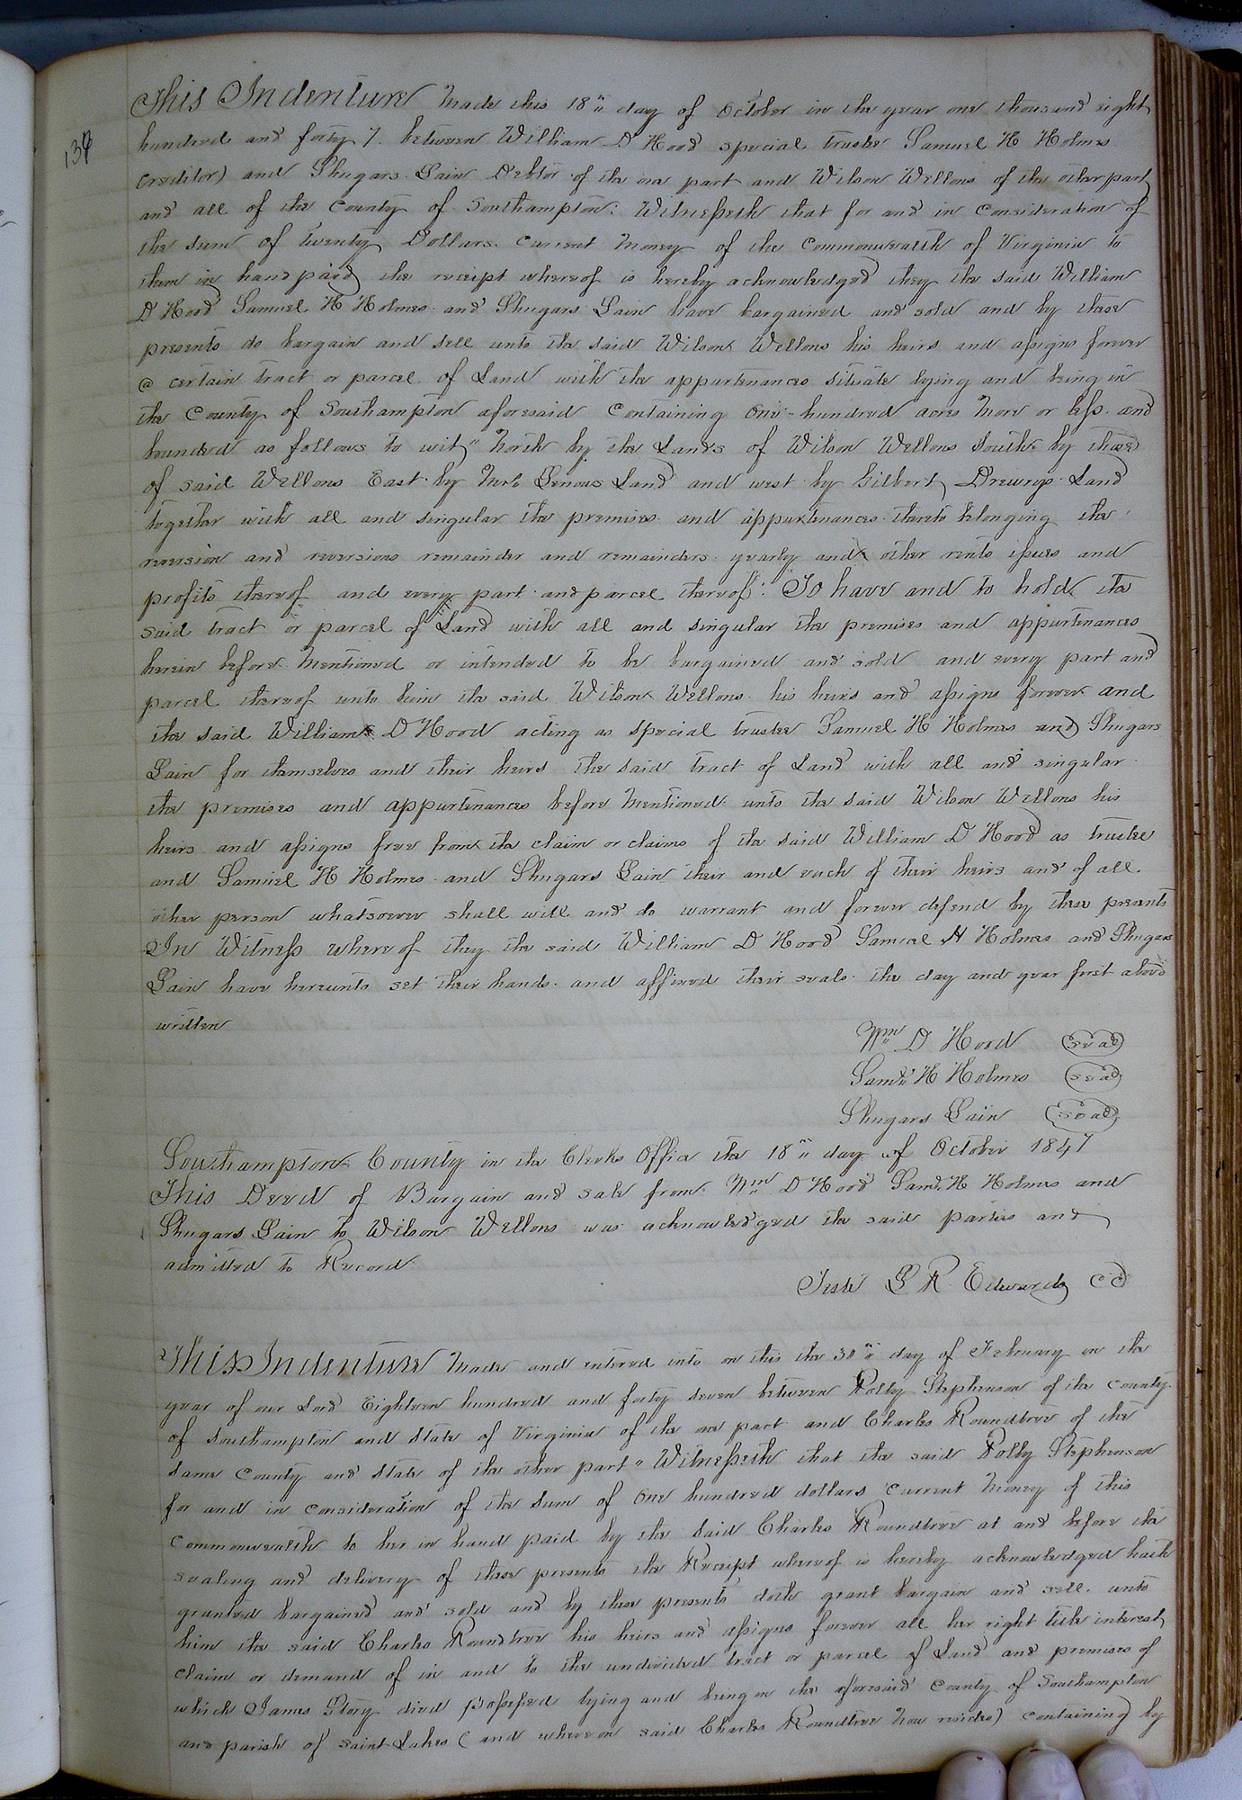 134
This Indenture Made this 18" day of October in the year one thousand eight
hundred and forty 7. between William D Hood special trustee Samuel H Holmes
Creditor) and Shugars Lain Debtor of the one part and Wilson Wellons of the other part
and all of the County of Southampton: Witnesseth that for and in Consideration of
the sum of twenty Dollars current money of the Commonwealth of Virginia to
them in hand paid the receipt whereof is hereby acknowledged they the said William
D Hood Samuel H Holmes and Shugars Lain have bargained and sold and by these
presents do bargain and sell unto the said Wilson Wellons his heirs and assigns forever
@ certain tract or parcel of Land with the appartenances situate lying and being in
the County of Southampton aforesaid Containing One-hundred acres more or less and
bounded as follows to wit" North by the Lands of Wilson Wellons South by those
of said Wellons East by Land and west by Gilbert Drewrys Land
together with all and singular the premises and appurtenances thereto belonging the
reversion and reversions remainder and remainders yearly and other rents issues and
profits thereof and every part and parcel thereof: To have and to hold the
said tract or parcel of Land with all and singular the premises and appurtenances
herein before mentioned or intended to be bargained and sold and every part and
parcel thereof unto him the said Wilson Wellons his heirs and assigns forever and
the said William D Hood acting as special trustee Samuel H Holmes and Shugars
Lain for themselves and their heirs the said tract of Land with all and singular
the premises and appurtenances before mentioned unto the said Wilson Wellons his
heirs and assigns free from the claim or claims of the said William D Hood as trustee
and Samuel H Holmes and Shugars Lain their and each of their heirs and of all
other person whatsoever shall will and do warrant and forever defend by these presents
In Witness whereof they the said William D Hood Samuel H Holmes and Shugars
Lain have hereunto set their hands and affixed their seals the day and year first above
written
Wm D Hood (seal)
Saml H Holmes (seal)
Shugars Lain (seal)
Southampton County in the Clerks Office the 18" day of October 1847
This Deed of Bargain and sale from Wm D Hood Saml H Holmes and
Shugars Lain to Wilson Wellons was acknowledged the said parties and
admitted to Record
Teste L R Edwards CC
This Indenture Made and entered into on this the 30" day of February in the
year of our Lord Eighteen hundred and forty seven between Polly Stephenson of the county
of Southampton and State of Virginia of the one part and Charles Roundtree of the
same County and State of the other part" Witnesseth that the said Polly Stephenson
for and in consideration of the sum of One hundred dollars current money of this
Commonwealth to her in hand paid by the said Charles Roundtree at and before the
sealing and delivery of these presents the Receipt whereof is hereby acknowledged hath
granted bargained and sold and by these presents doth grant bargain and sell unto
him the said Charles Roundtree his heirs and assigns forever all her right title interest
claim or demand of in and to the undivided tract or parcel of Land and premises of
which James Story died possessed lying and being in the aforesaid County of Southampton
and parish of Saint Lukes (and whereon said Charles Roundtree now resides) containing by